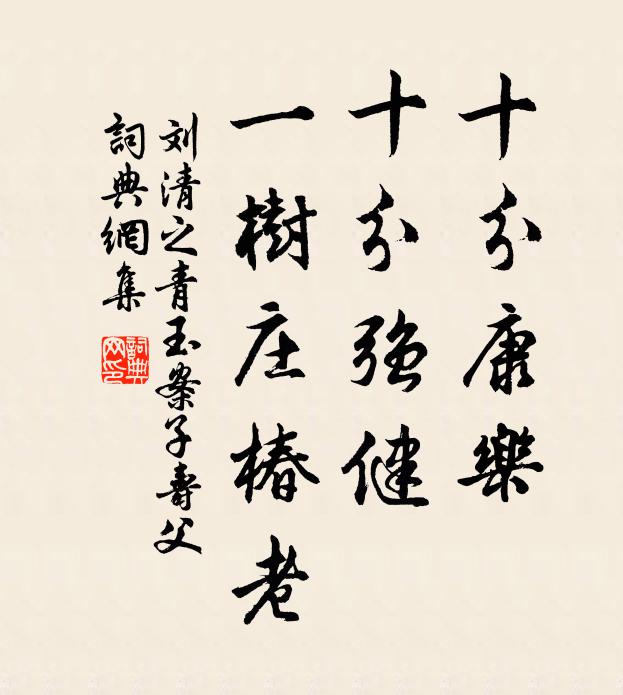 十分康樂
十分强健
一樹庄椿老
刘清之青玉案子壽父
詞典網集
詞典网印